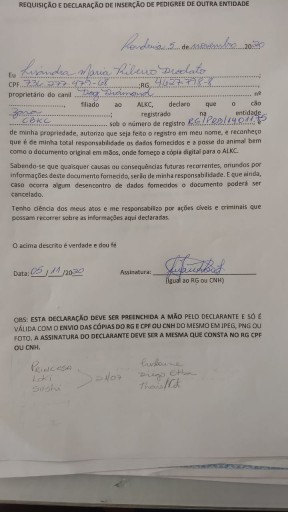 REQUISIÇÃO E DECLARAÇÃO DE INSERÇÃO DE PEDIGREE DE OUTRA ENTIDADE
Londrina 5 de novembro 2020
Eu Maria Ribeiro
CPF RG
proprietário do canil Dog Diamond nº
filiado ao ALKC, declaro que o cão
registrado na entidade
CBKC sob o número de registro
de minha propriedade, autorizo que seja feito o registro em meu nome, e reconheço
que é de minha total responsabilidade os dados fornecidos e a posse do animal bem
como o documento original em mãos, onde forneço a cópia digital para o ALKC.
Sabendo-se que quaisquer causas ou consequências futuras recorrentes, oriundos por
informações deste documento fornecido, serão de minha responsabilidade. E que ainda,
caso ocorra algum desencontro de dados fornecidos o documento poderá ser
cancelado.
Tenho ciência dos meus atos e me responsabilizo por ações cíveis e criminais que
possam recorrer sobre as informações aqui declaradas.
O acima descrito é verdade e dou fé
Data: 05/11/2020 Assinatura:
(Igual ao RG ou CNH)
OBS: ESTA DECLARAÇÃO DEVE SER PREENCHIDA A MÃO PELO DECLARANTE E SÓ É
VÁLIDA COM O ENVIO DAS CÓPIAS DO RG E CPF OU CNH DO MESMO EM JPEG, PNG OU
FOTO. A ASSINATURA DO DECLARANTE DEVE SER A MESMA QUE CONSTA NO RG CPF
OU CNH.
Princesa
Loki
Sushi